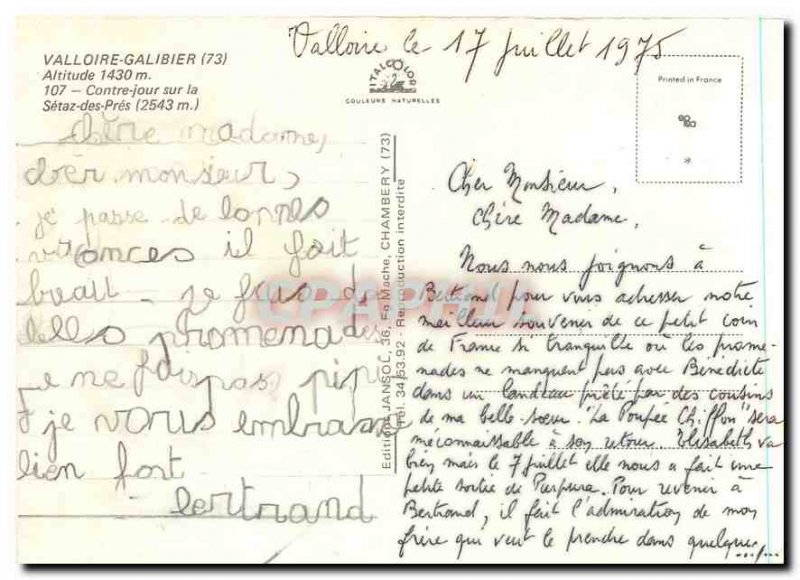 Valloire le 17 juillet 1975
VALLOIRE-GALIBIER (73)
Altitude 1430 m.
107 — Contre-jour sur la
Sétaz-des-Prés (2543 m.)
ITALCOLOR
COULEURS NATURELLES
Printed in France
Chère madame,
cher monsieur,
je passe de bonnes
vacances il fait
beau - je fais de
belles promenades
je ne fais pas pipi
et je vous embrasse
bien fort
bertrand
Editions JANSOL, 36, Fg Mache, CHAMBERY (73)
Tél. 34.53.92 - Reproduction interdite
Cher Monsieur,
Chère Madame,
Nous nous joignons à
Bertrand pour vous adresser notre
meilleur souvenir de ce petit coin
de France si tranquille où les prome-
nades ne manquent pas avec Bénédicte
dans un landeau prêté par des cousins
de ma belle-sœur. "La Poupée Chiffon" sera
méconnaissable à son retour. Elisabeth va
bien mais le 7 juillet elle nous a fait une
petite sortie de Purpura. Pour revenir à
Bertrand, il fait l'admiration de mon
frère qui veut le prendre dans quelques .../...
CPAPHIL